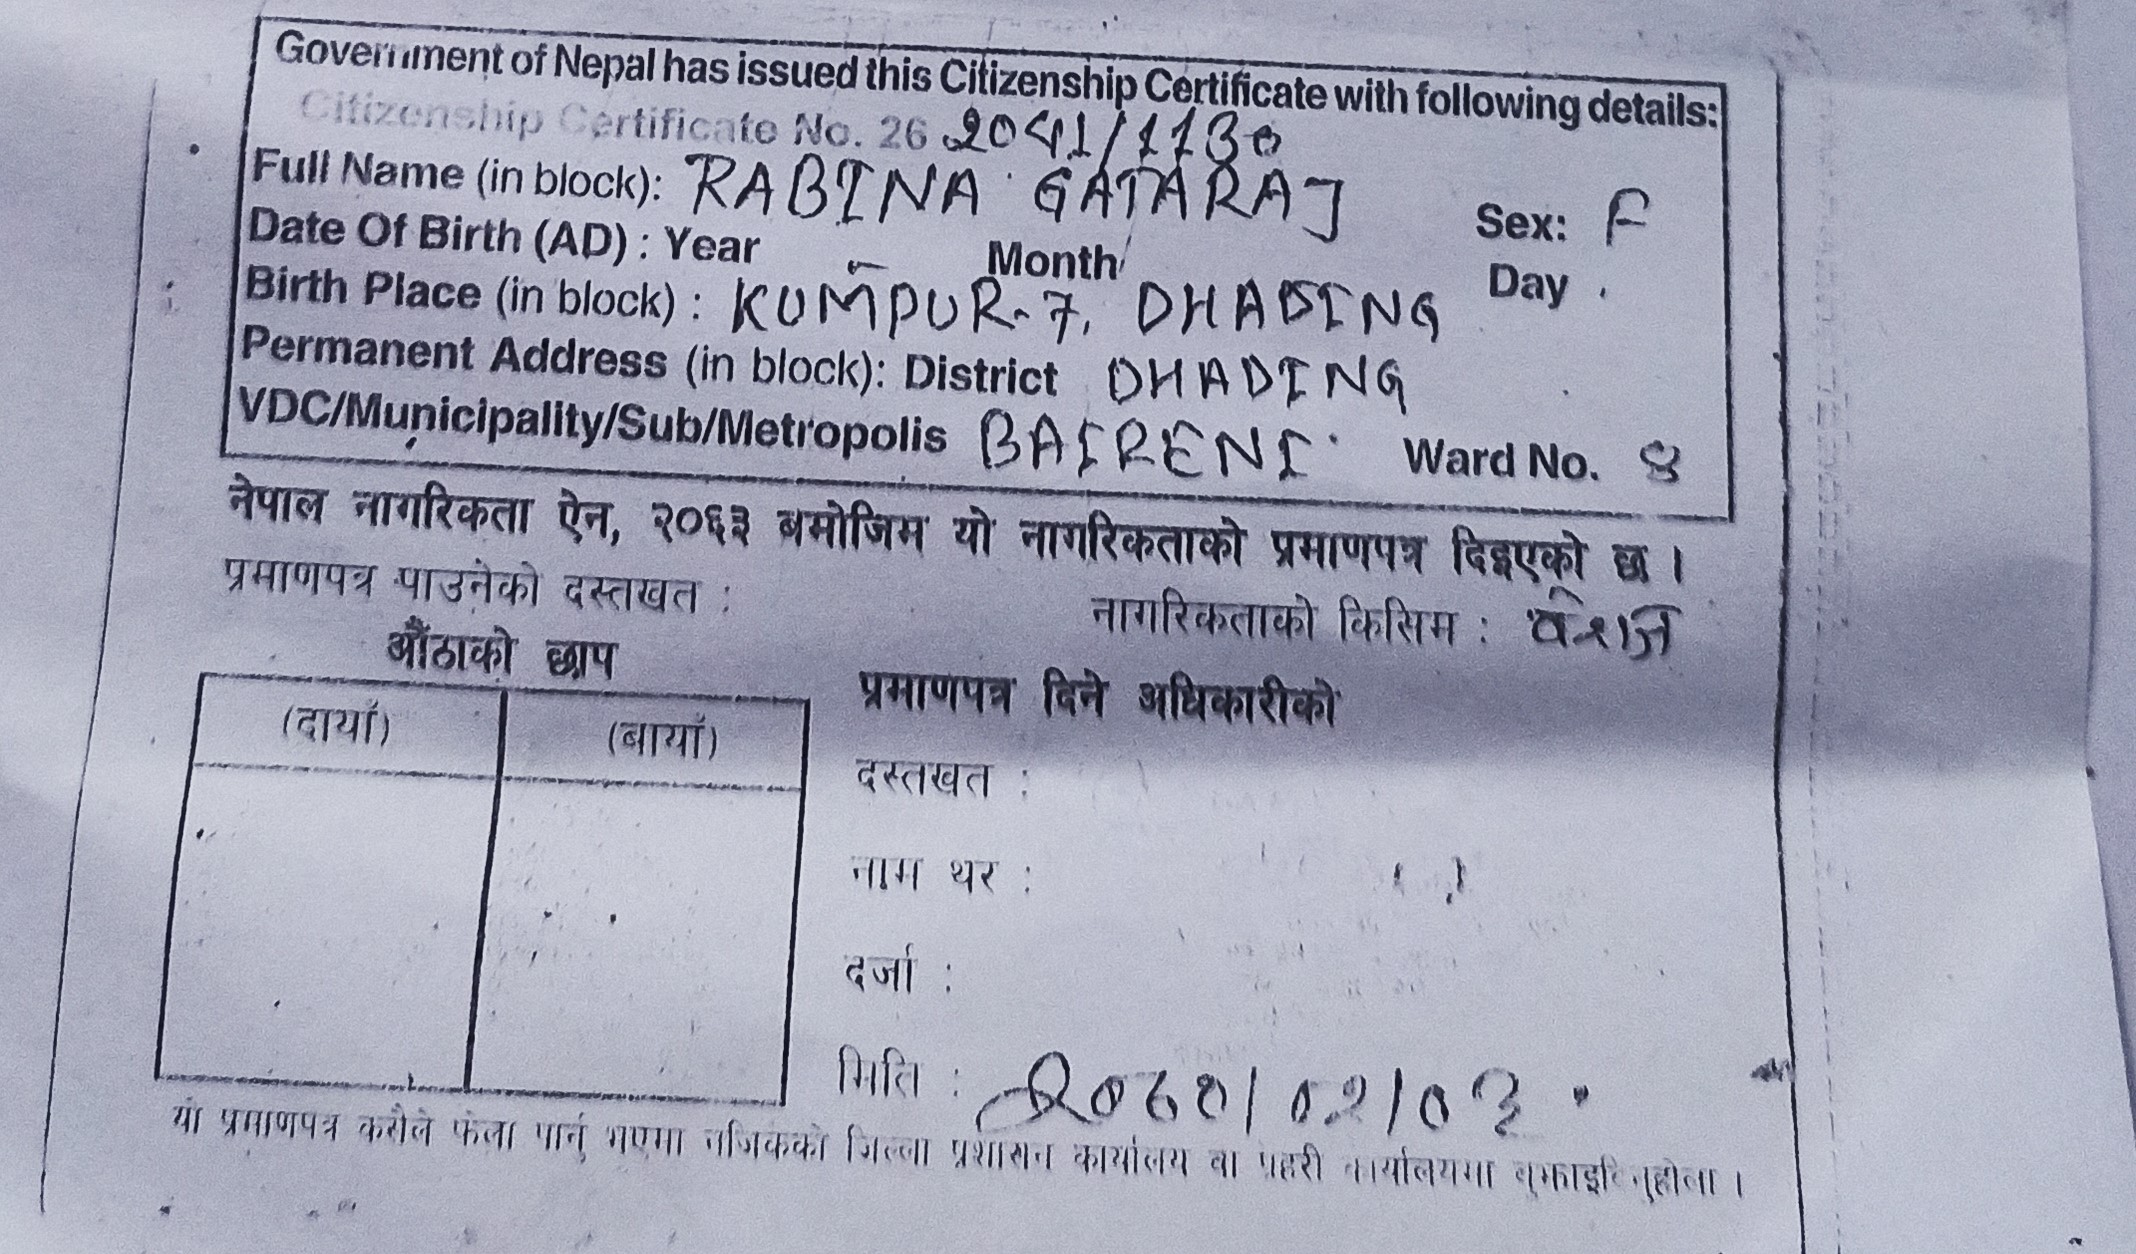 Government of Nepal has issued this Citizenship Certificate with following details:
Citizenship Certificate No. 26 2041/1130
Full Name (in block): RABINA GATARAJ Sex: F
Date Of Birth (AD) : Year Month Day
Birth Place (in block) : KUMPUR-7, DHADING
Permanent Address (in block): District DHADING
VDC/Municipality/Sub/Metropolis BAIRENI Ward No. 8
नेपाल नागरिकता ऐन, २०६३ बमोजिम यो नागरिकताको प्रमाणपत्र दिइएको छ ।
प्रमाणपत्र पाउनेको दस्तखत :
नागरिकताको किसिम : वंशज
औंठाको छाप
(दायाँ) (बायाँ)
प्रमाणपत्र दिने अधिकारीको
दस्तखत :
नाम थर :
दर्जा :
मिति :
यो प्रमाणपत्र कसैले फेला पार्नु भएमा नजिकको जिल्ला प्रशासन कार्यालय वा प्रहरी कार्यालयमा बुझाइदिनुहोला ।